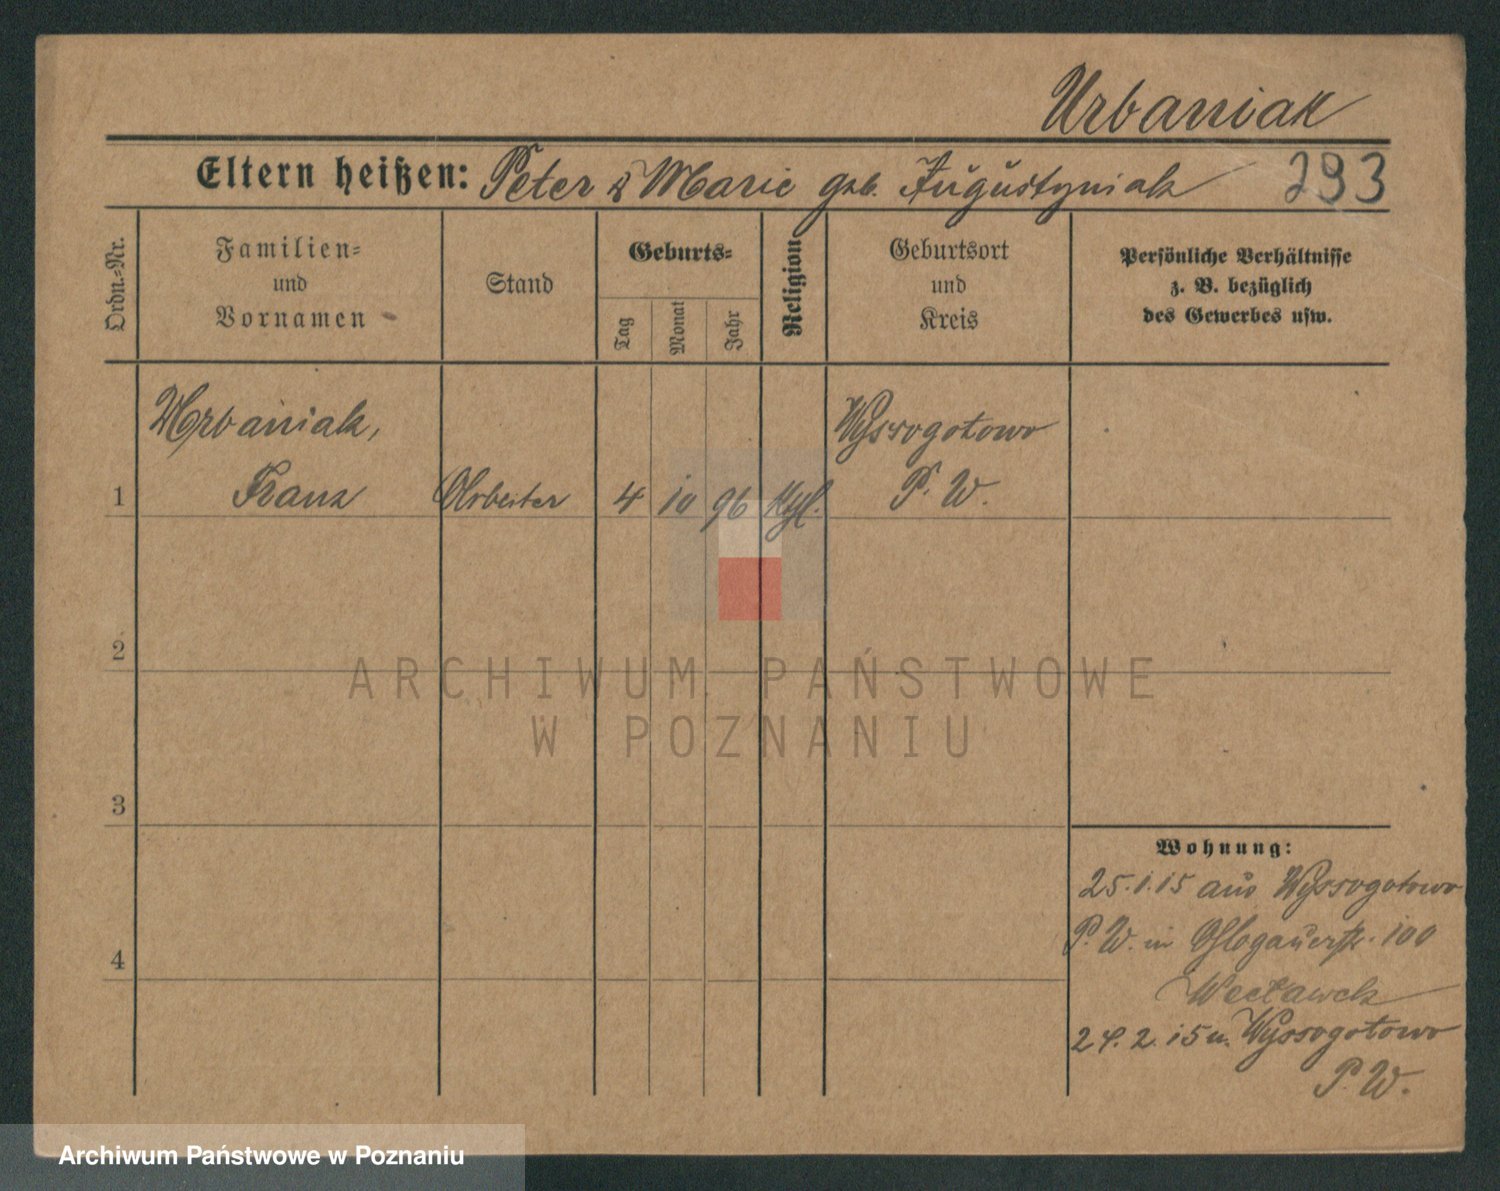 Urbaniak
Eltern heißen: Peter & Marie geb. Augustyniak 293
Ordn.-Nr.
Familien-
und
Vornamen
Stand
Geburts-
Tag
Monat
Jahr
Religion
Geburtsort
und
Kreis
Persönliche Verhältnisse
z. B. bezüglich
des Gewerbes usw.
Urbaniak, Wyssogotowo
1 Franz Arbeiter 4 10 96 ktgl. P. W.
2
ARCHIWUM PAŃSTWOWE
W POZNANIU
3
Wohnung:
25.1.15 aus Wyssogotowo
P. W. in Glogauerstr. 100
4
Wecławek
24.2.15 n. Wyssogotowo
P. W.
Archiwum Państwowe w Poznaniu